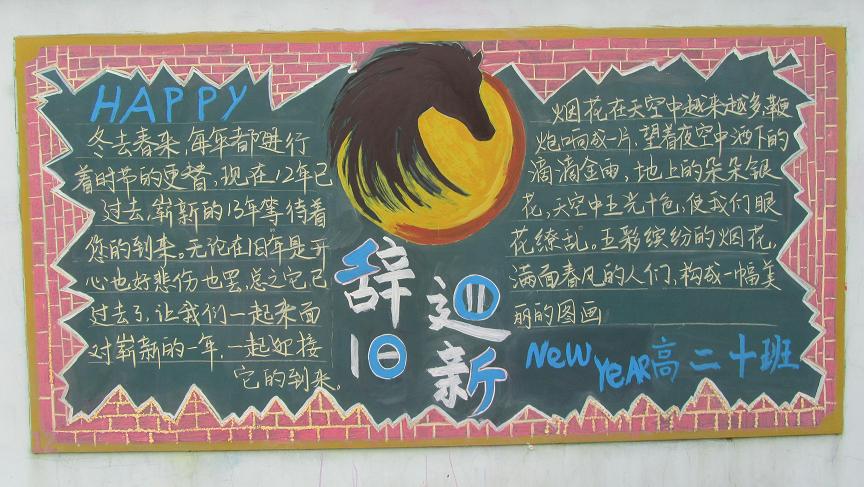 HAPPY
冬去春来,每年都进行
着时节的更替,现在12年已
过去,崭新的13年等待着
您的到来。无论在旧年是开
心也好悲伤也罢,总之它已
过去了,让我们一起来面
对崭新的一年,一起迎接
它的到来。
辞旧
迎新
烟花在天空中越来越多,鞭
炮响成一片,望着夜空中洒下的
滴滴金雨,地上的朵朵银
花,天空中五光十色,使我们眼
花缭乱。五彩缤纷的烟花,
满面春风的人们,构成一幅美
丽的图画
NeW YeAR高二十班